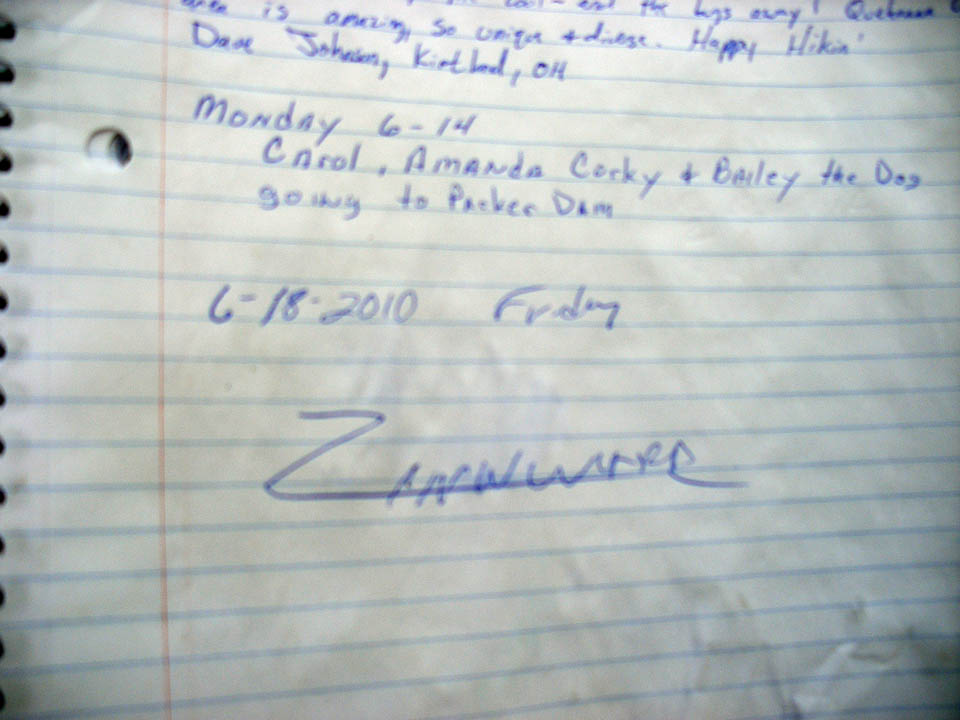 the bugs away!
area is amazing, so unique + diverse. Happy Hikin'
Dave Johnson, Kirtland, OH
Monday 6-14
Carol, Amanda Corky + Bailey the Dog
going to Parker Dam
6-18-2010 Friday